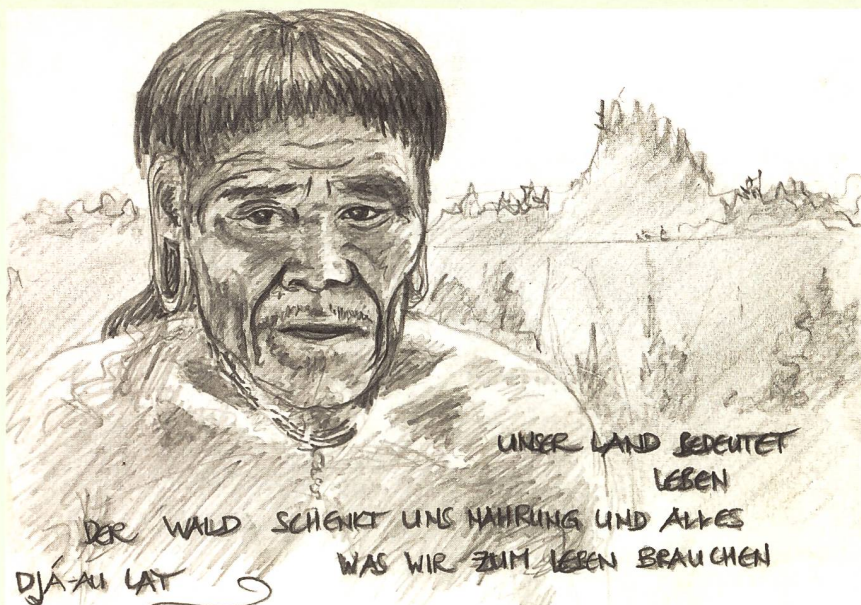 UNSER LAND BEDEUTET
LEBEN
DER WALD SCHENKT UNS NAHRUNG UND ALLES
WAS WIR ZUM LEBEN BRAUCHEN
DJÁ-AU LAT